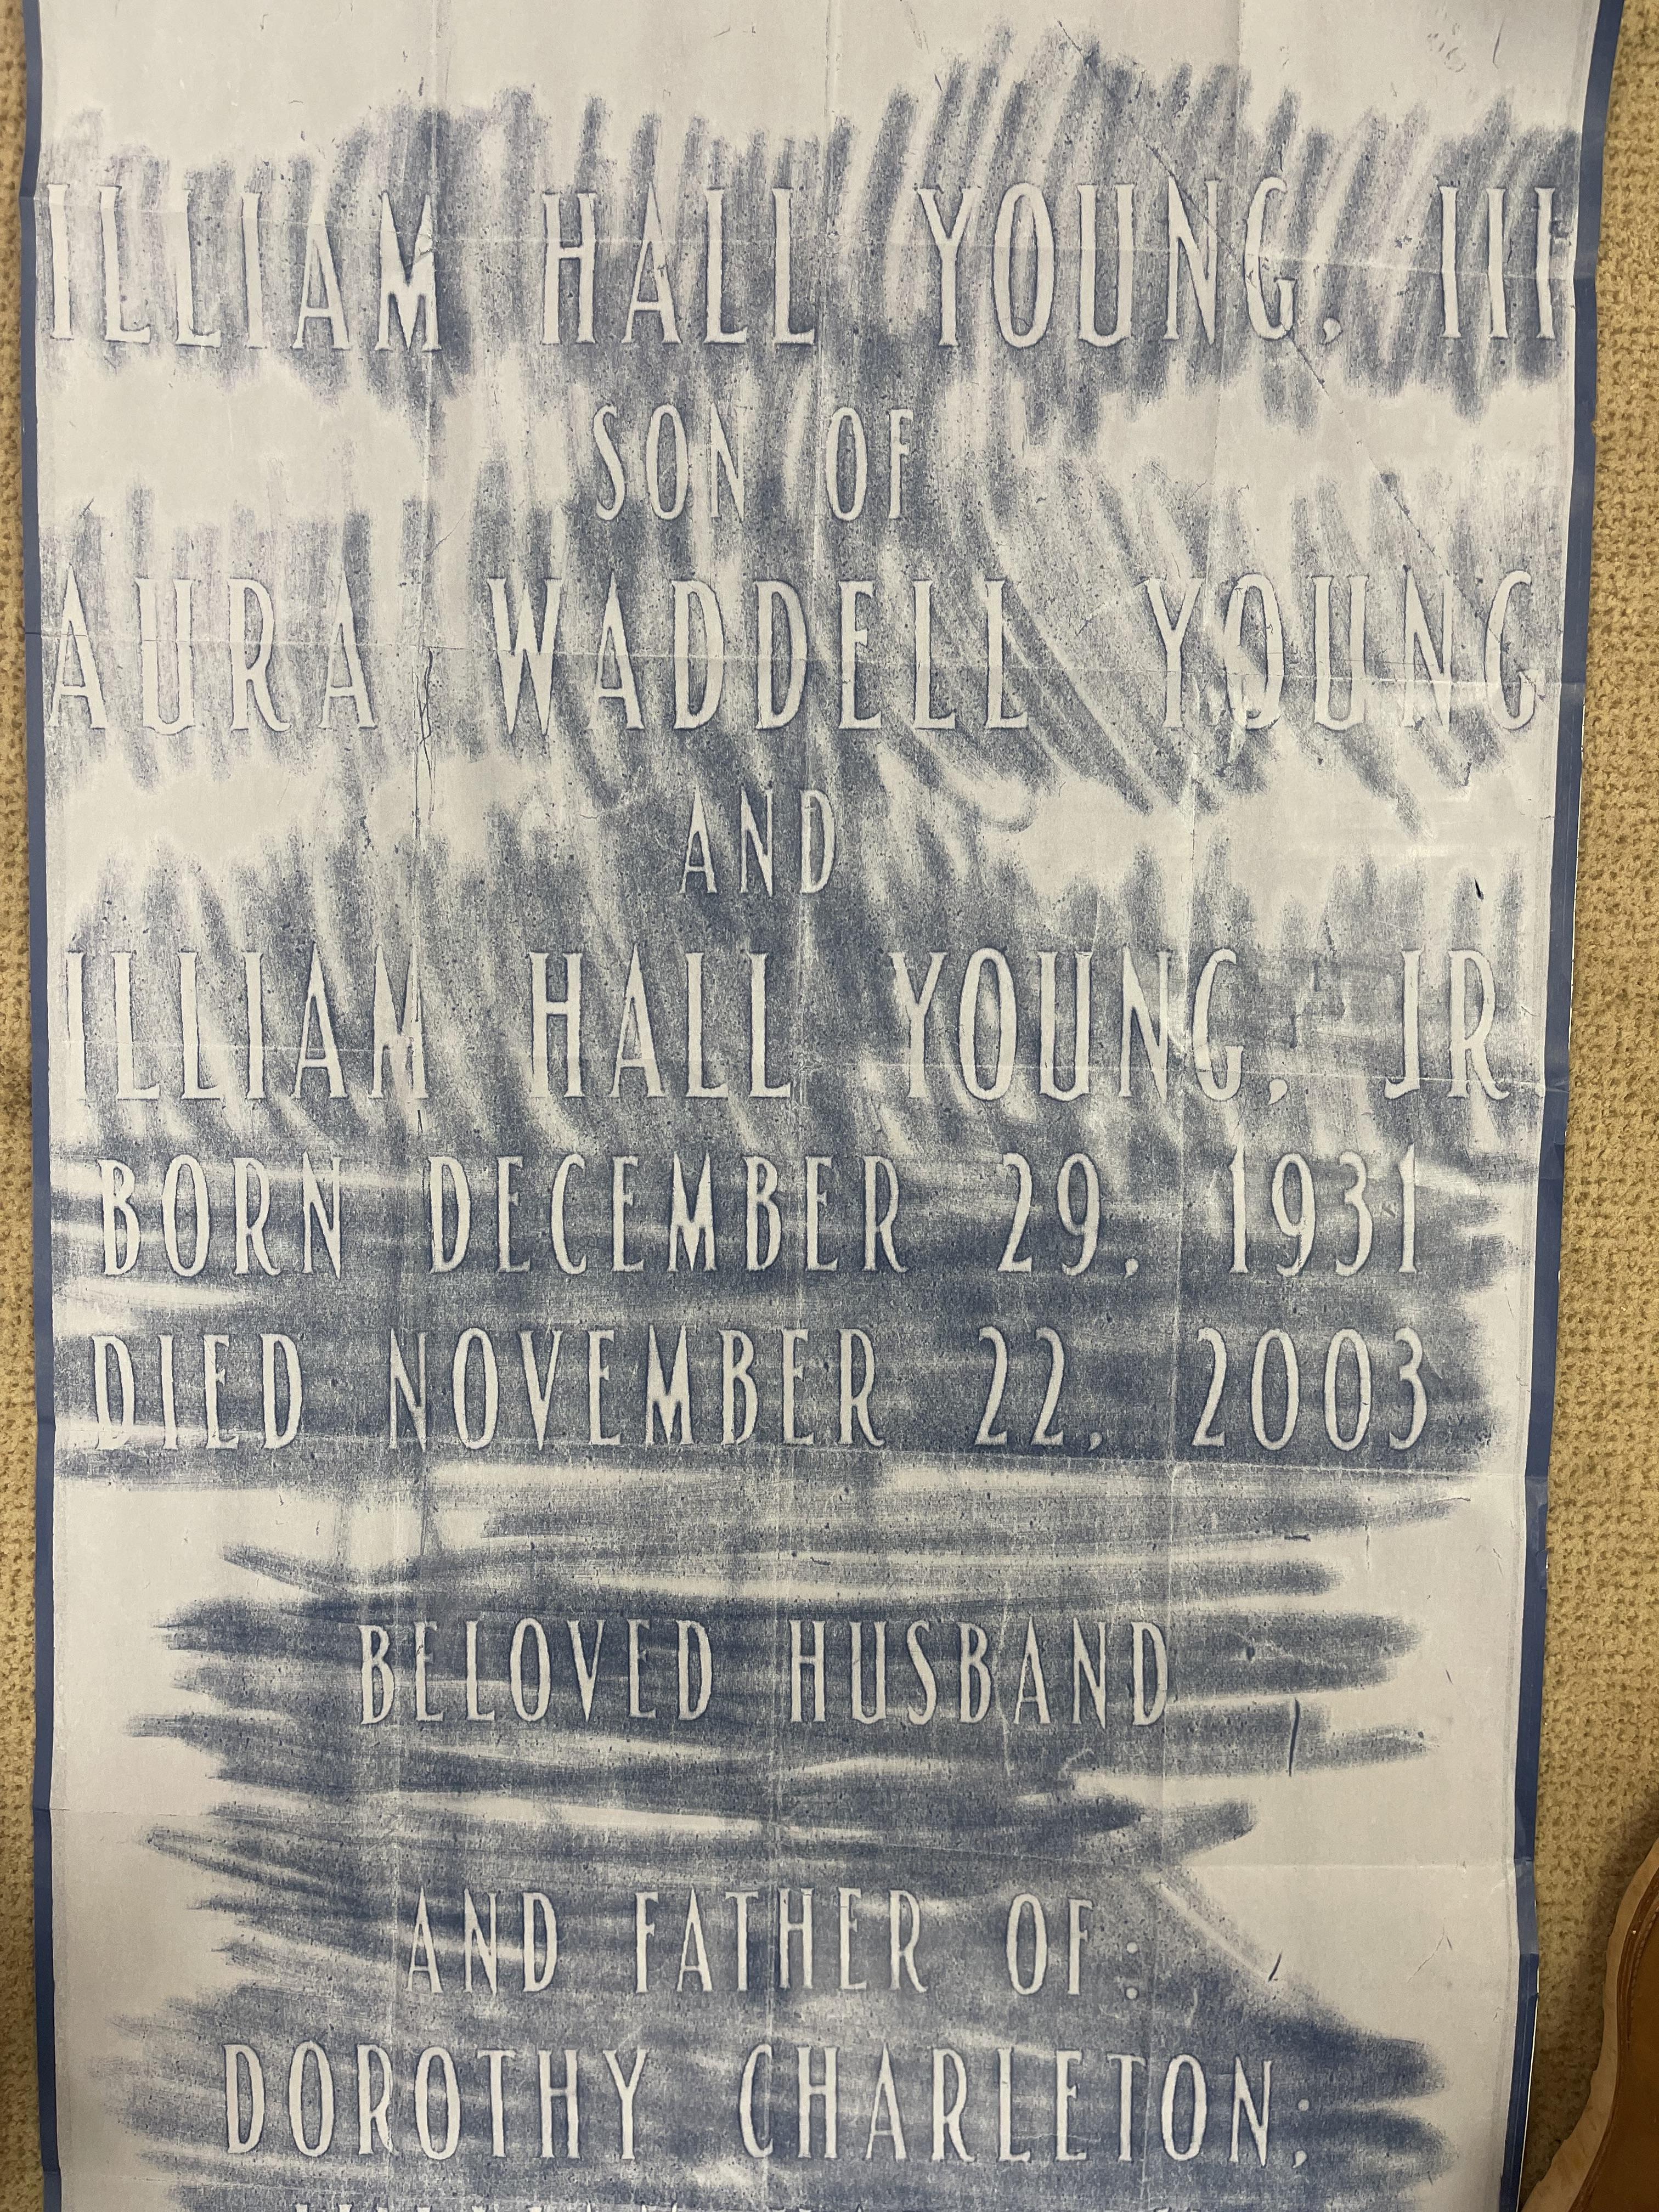 ILLIAM HALL YOUNG, III
SON OF
AURA WADDELL YOUNG
AND
ILLIAM HALL YOUNG, JR.
BORN DECEMBER 29, 1931
DIED NOVEMBER 22, 2003
BELOVED HUSBAND
AND FATHER OF:
DOROTHY CHARLETON;